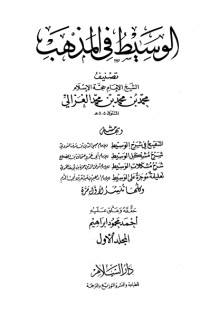 الوسيط في المذهب
تصنيف
الشيخ الإمام حجة الإسلام
محمد بن محمد بن محمد الغزالي
المتوفى ٥٠٥ هـ
وبهامشه
التنقيح في شرح الوسيط
شرح مشكل الوسيط
شرح مشكلات الوسيط
تعليقة موجزة على الوسيط
وكلها تنشر لأول مرة
حققه وعلق عليه
أحمد محمود إبراهيم
المجلد الأول
دار السلام
للطباعة والنشر والتوزيع والترجمة